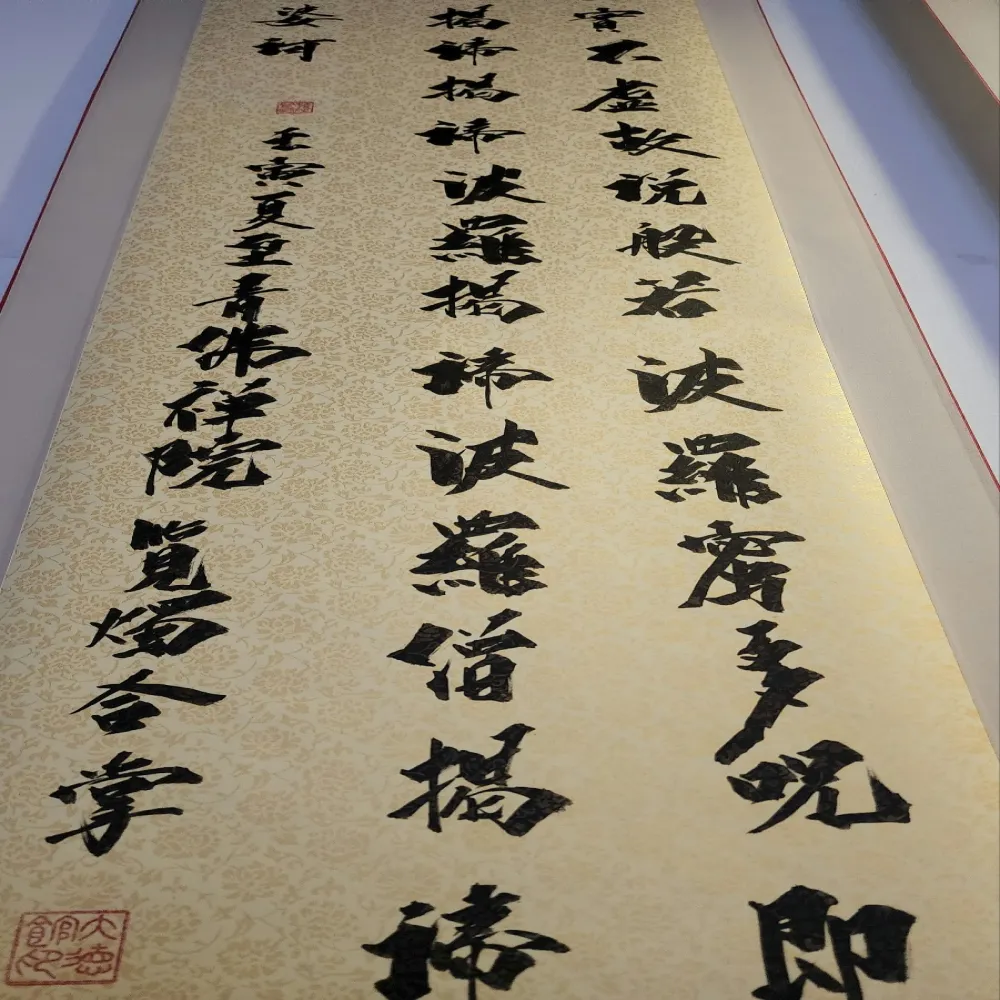 實不虛故說般若波羅蜜多呪即
揭諦揭諦波羅揭諦波羅僧揭諦
婆訶
壬寅夏至青佛禅院燭合掌
大德館印